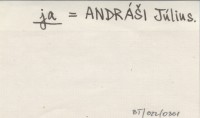 ja = ANDRÁŠI Július.
BT/072/0301